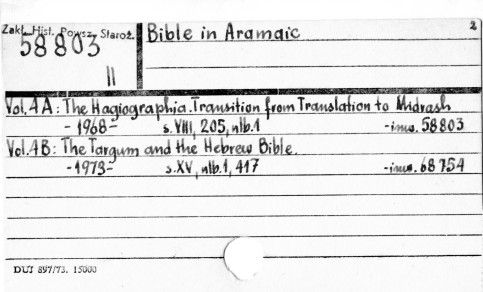 Zakł. Hist. Powsz. Staroż.
58803
II
Bible in Aramaic
2
Vol. 4A: The Hagiographia. Transition from Translation to Midrash
- 1968 - s. VIII, 205, nlb. 1 - inw. 58803
Vol. 4B: The Targum and the Hebrew Bible.
- 1973 - s. XV, nlb. 1, 417 - inw. 68754
DUJ 897/73. 15000